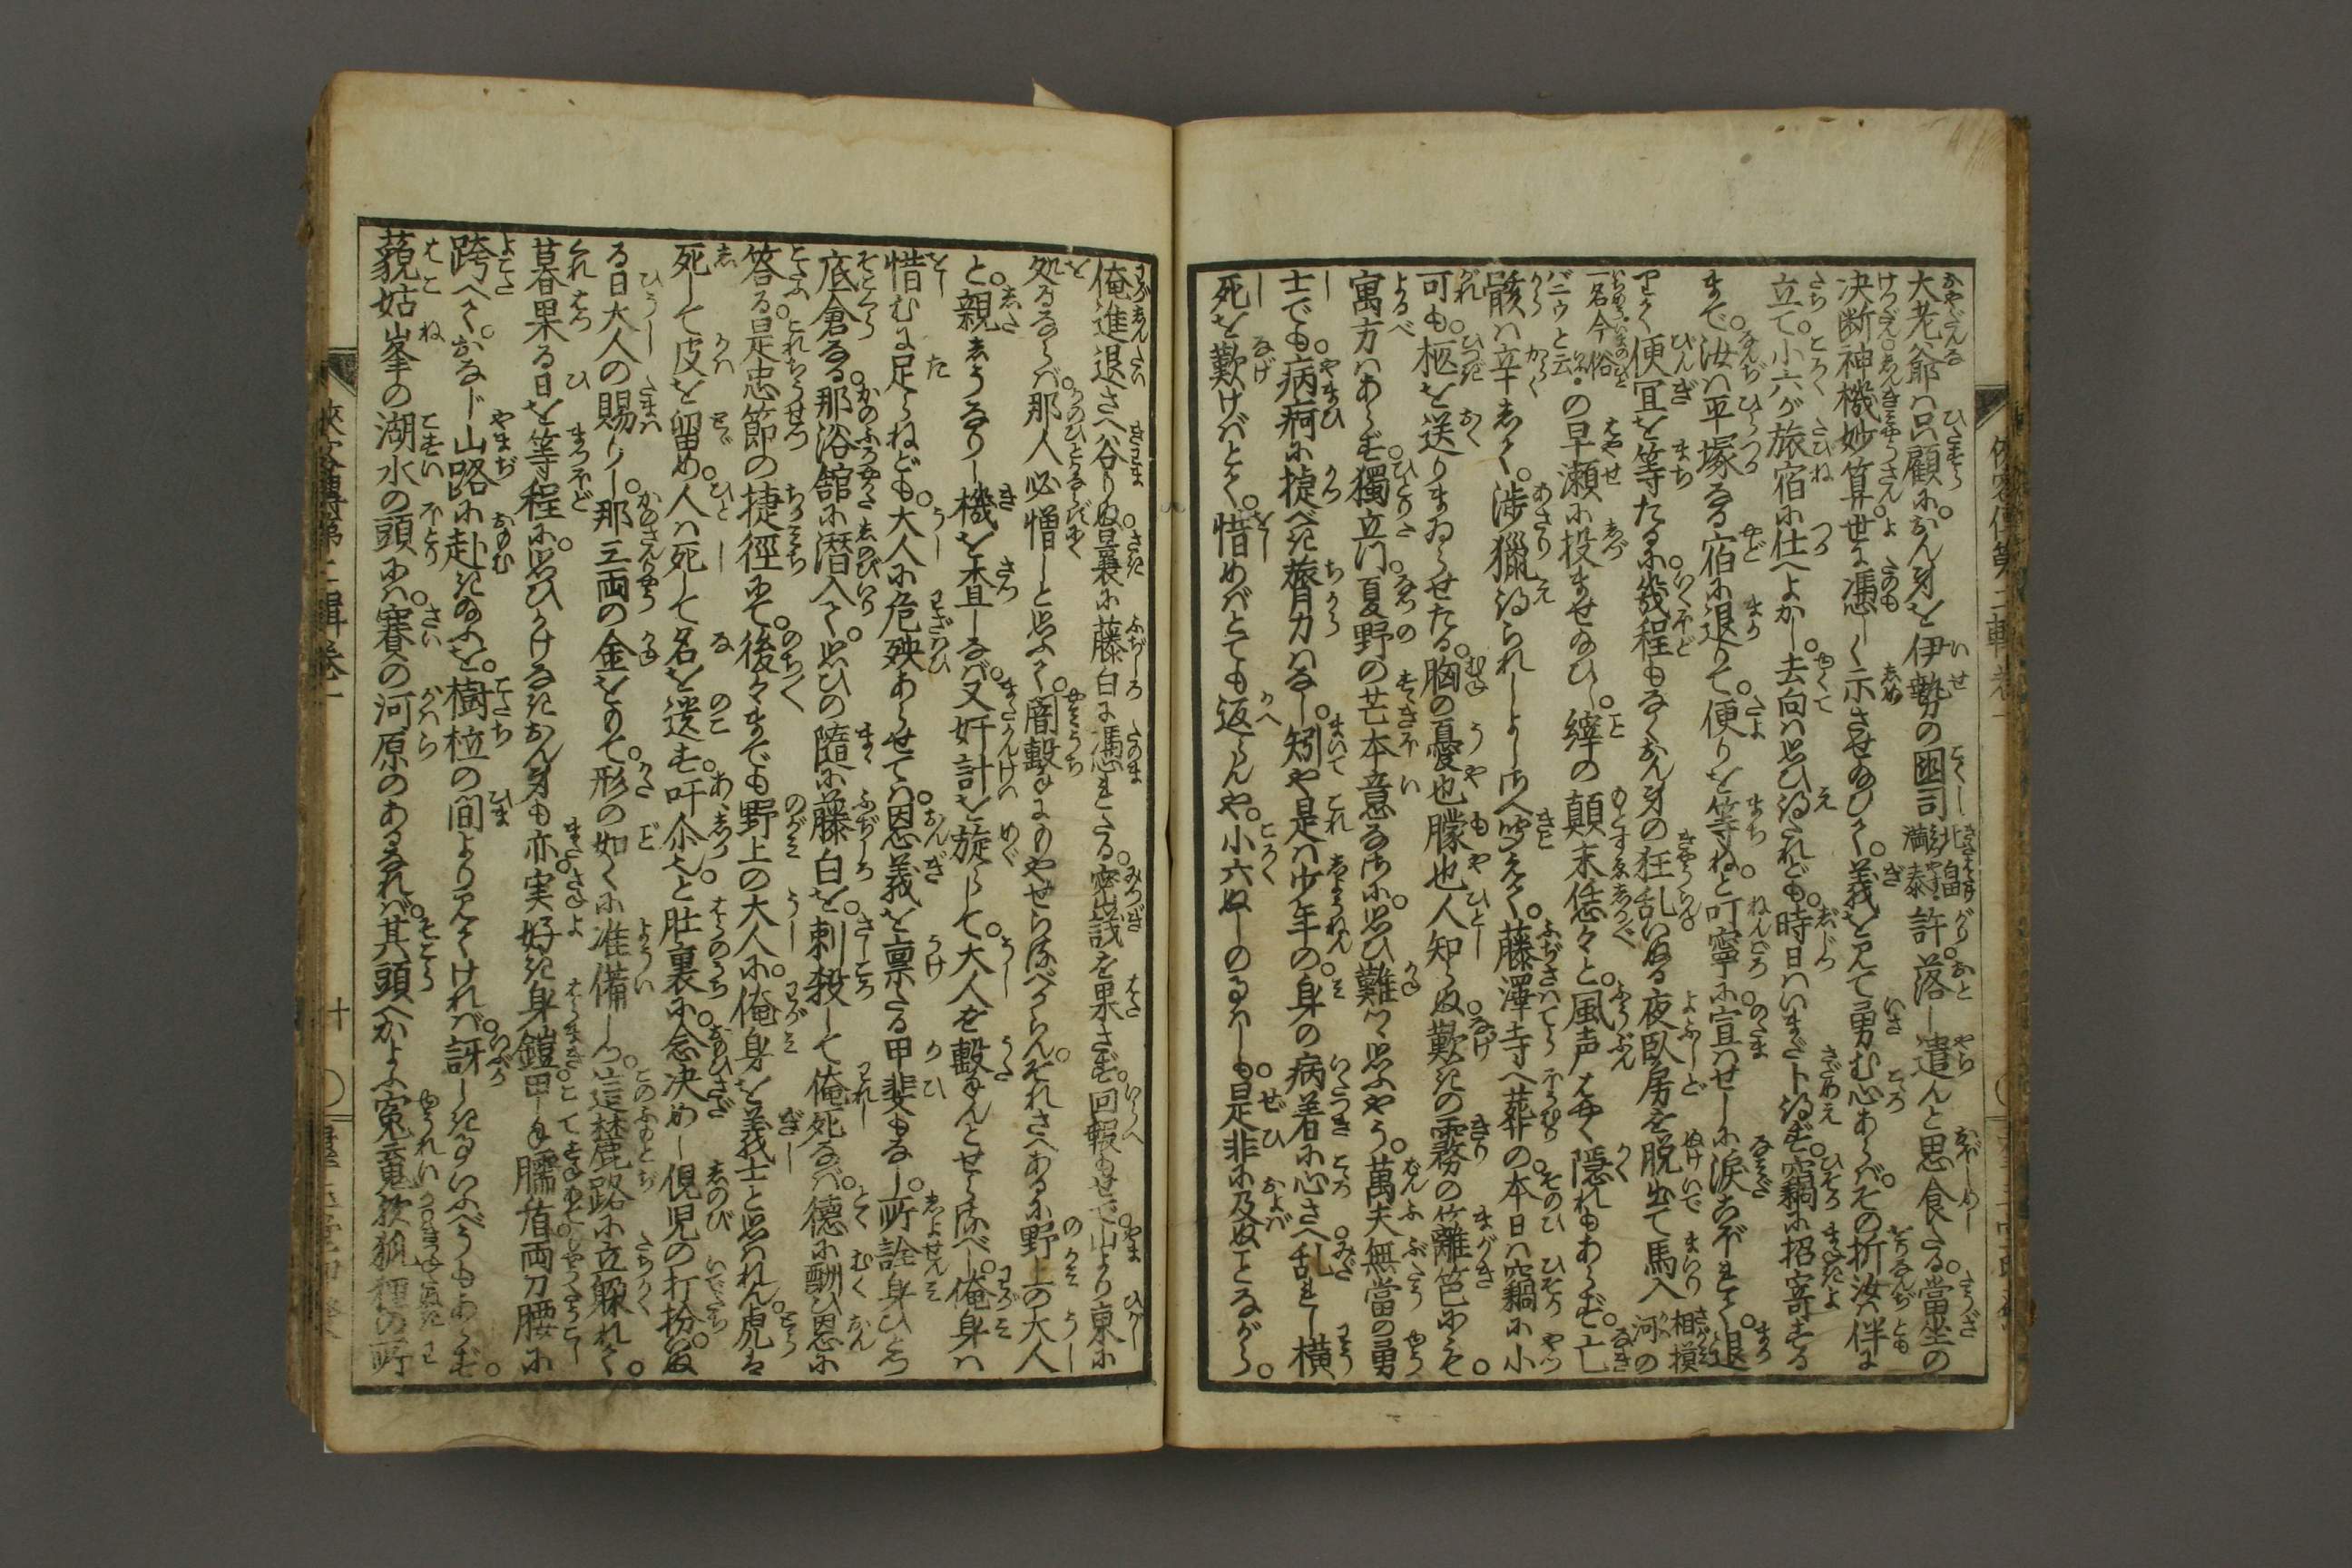 大老爺ハ只顧に。おん身を伊勢の国司北畠満泰許。落し遣んと思食たる。當坐の
決断神機妙算。世に憑しく示させ給ひて。義を見て勇む心あらば。その折汝ハ伴に
立て。小六が旅宿に仕へよかし。去向ハ思ひ得たれども。時日ハいまだト得ず。窃に招寄する
まで。汝ハ平塚なる宿に退りて。便りを等ねと叮寧に宣はせしに。涙さしぐみて。退
りて便宜を等たるに。幾程もなくおん身の狂乱いぬる夜臥房を脱出て馬入相摸河の
一名今俗バニウと云の早瀬に投ませ給ひし。縡の顛末恁々と。風声はやく隠れもあらず。亡
骸ハ辛して。渉獵得られしよし聞えて。藤澤寺へ葬の本日ハ窃に小
可も。柩を送りまゐらせたる。胸の憂也朦也人知らぬ歎きの霧の籬笆にそ。
寓方ハあらず獨立。夏野の芒本意なきに。思ひ難つゝ思ふやう。萬夫無當の勇
士でも。病痾に捷べき膂力ハなし。矧や是ハ少年の身の病着に心さへ乱れし横
死を歎けばとて。惜めばとても返らんや。小六ぬしの事ハしも。是非に及ぬことながら。
俺進退さへ谷りぬ。曩に藤白に憑れたる。密議を果さず。回報もせで。山より東に
処るならば。那人必憎しと思ふて。闇撃にもやせらるべからん。それさへあるに野上の大人
と。親しうなりし機を査しなば。又奸計を旋らして。大人を撃んとせらるべし。俺身ハ
惜むに足らねども。大人に危殃あらせてハ。恩義を禀たる甲斐もなし。所詮身ひとつ
底倉なる。那浴舘に潜入て。思ひの隨に藤白を。刺殺して俺死なば。徳に酬ひ恩に
答る。是忠節の捷徑にて。後々までも野上の大人に。俺身を義士と思はれん。虎は
死して皮を留め。人ハ死して名を遺す。吁尒也と肚裏に。念決めし俔児の打扮。いぬ
る日大人の賜りし。那三両の金をもて。形の如くに准備しつ。這麓路に立躱れて。
暮果る日を等程に。思ひかけなきおん身も亦。実好き身鎧甲手臑盾両刀腰に
跨へて。おなじ山路に赴き給ふを。樹柆の間より見てければ。訝しき事いふべうもあらず。
藐姑峯の湖水の頭にハ。賽の河原のあるなれば。其頭へかよふ冤鬼欤狐狸の所